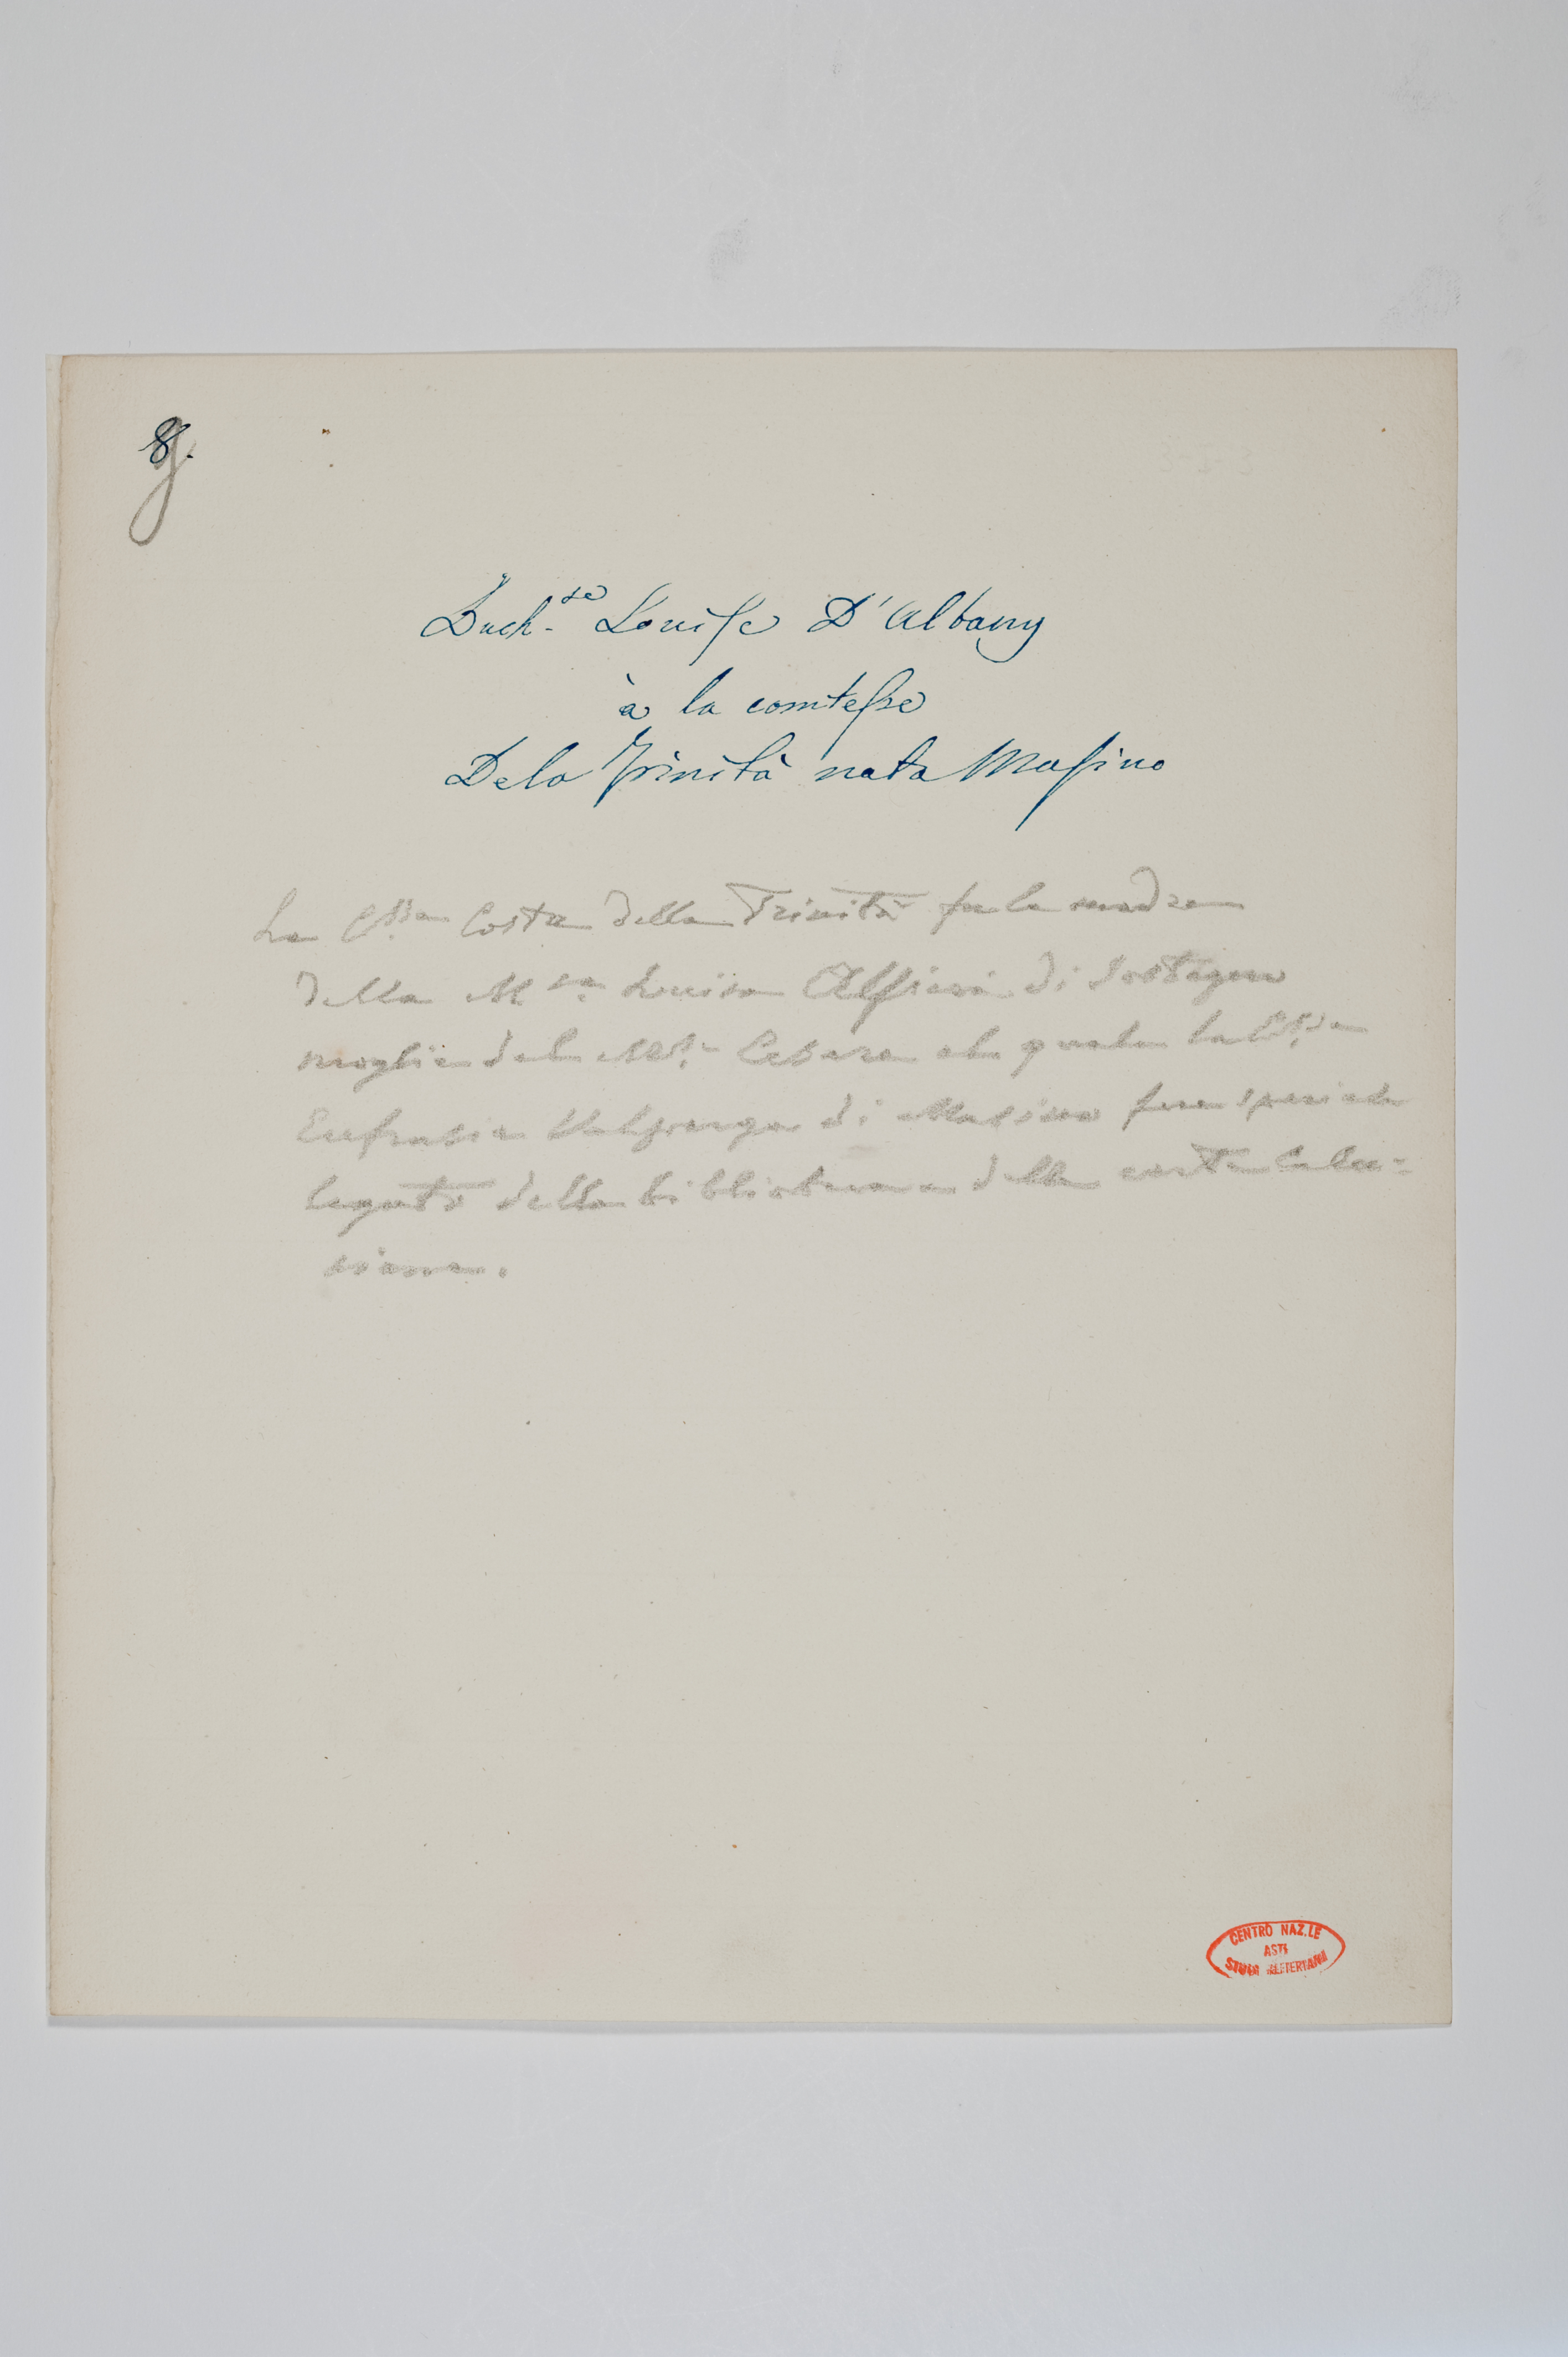 8.
Duch.se Louise D'Albany
à la comtesse
Dela Trinità nata Masino
La C.ssa Costa della Trinità fu la madre
della M.sa Luisa Alfieri di Sostegno
moglie del M.se Cesare al quale la C.ssa
Eufrasia Valperga di Masino fece speciale
legato della biblioteca e delle carte Calu-
siane.
CENTRO NAZ.LE
ASTI
STUDI ALFIERIANI